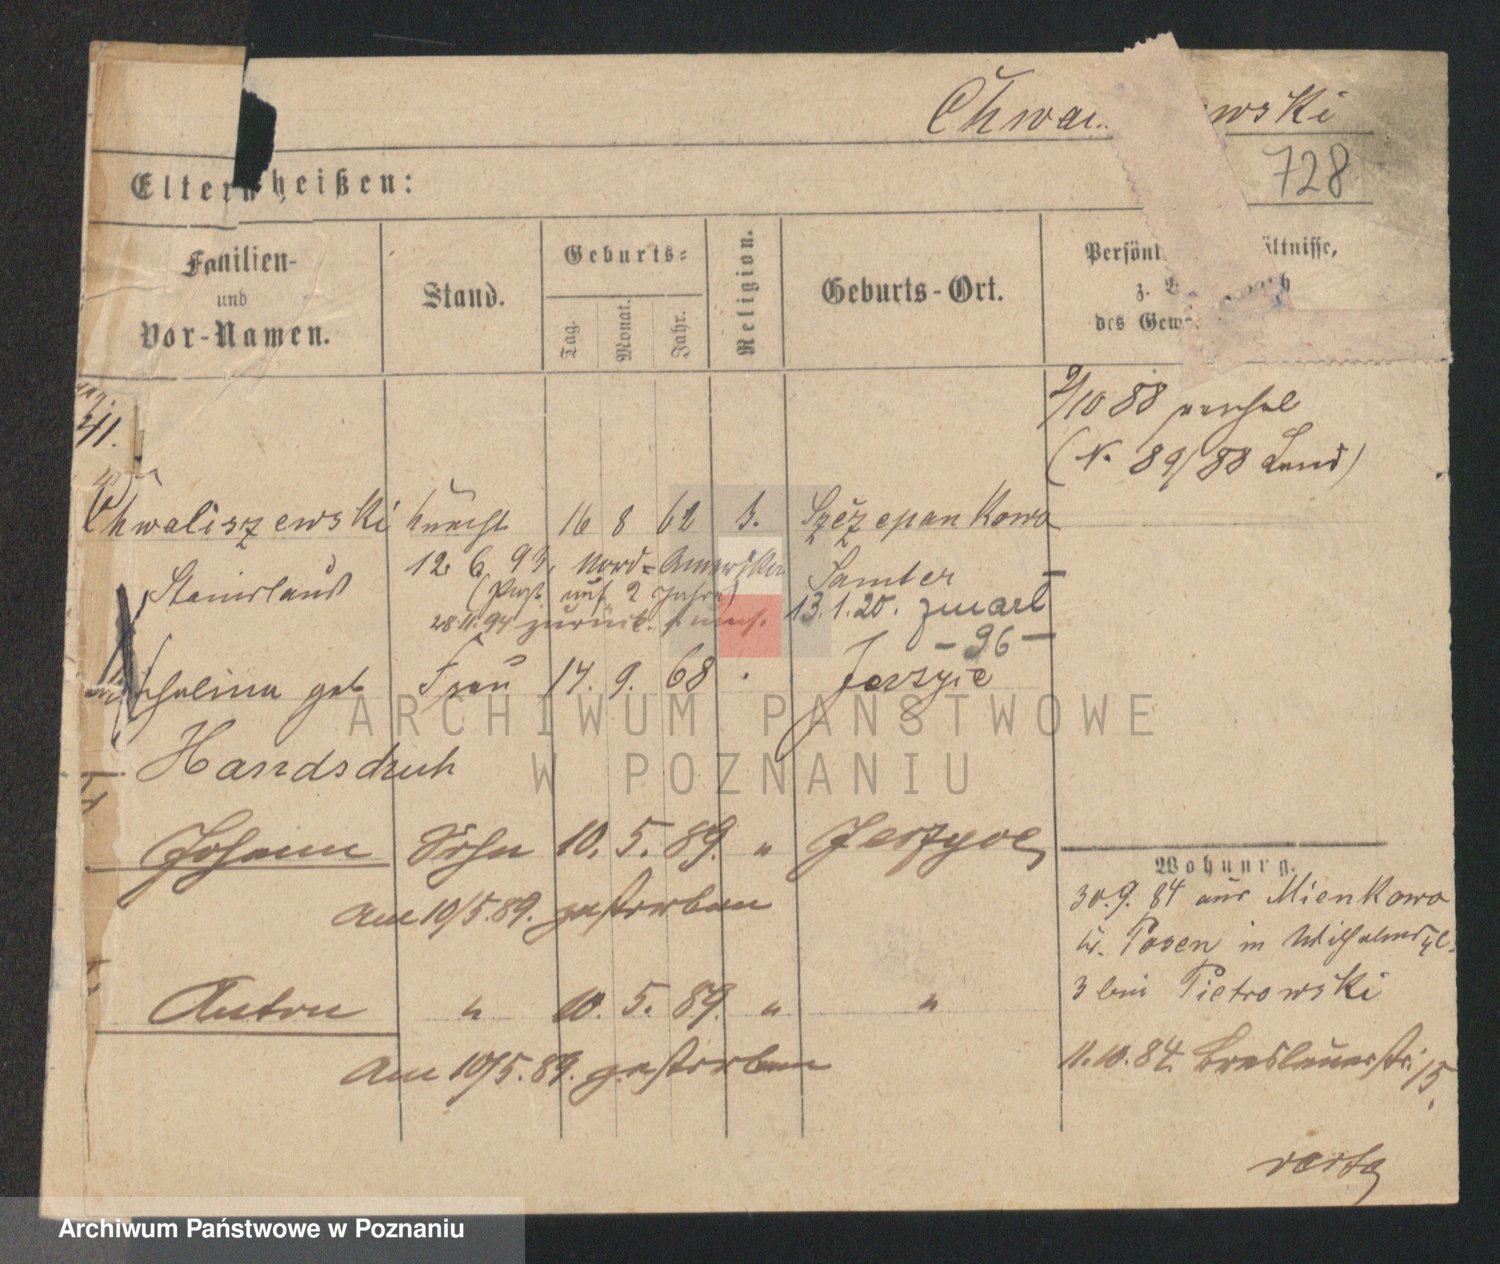 Chwa wski
728
Eltern heißen:
Familien-
und
Vor-Namen.
Stand.
Geburts-
Tag.
Monat.
Jahr.
Religion.
Geburts-Ort.
Persönl ältnisse,
z.
des Gew
41.
2/10 88
(N. 89/88 Land)
Chwaliszewski Knecht 16 8 62 Szczepankowo
Stanislaus 12. 6. 93. Nord-Amerika Samter
(Paß auf 2 Jahre) 13.1.20. zmarł
28.11.94 zurück. - 96 -
geb Frau 17. 9. 68 Jerzyce
Handschuh
Johann Sohn 10. 5. 89. " Jerzyce
Am 10/5.89. gestorben
Anton " 10. 5. 89. " "
Am 10/5.89. gestorben
Wohnung.
30.9.84 aus Mienkowo
n. Posen in Wilhelmspl.
3 bei Pietrowski
11.10.84. Breslauerstr. 15.
verte
ARCHIWUM PAŃSTWOWE
W POZNANIU
Archiwum Państwowe w Poznaniu